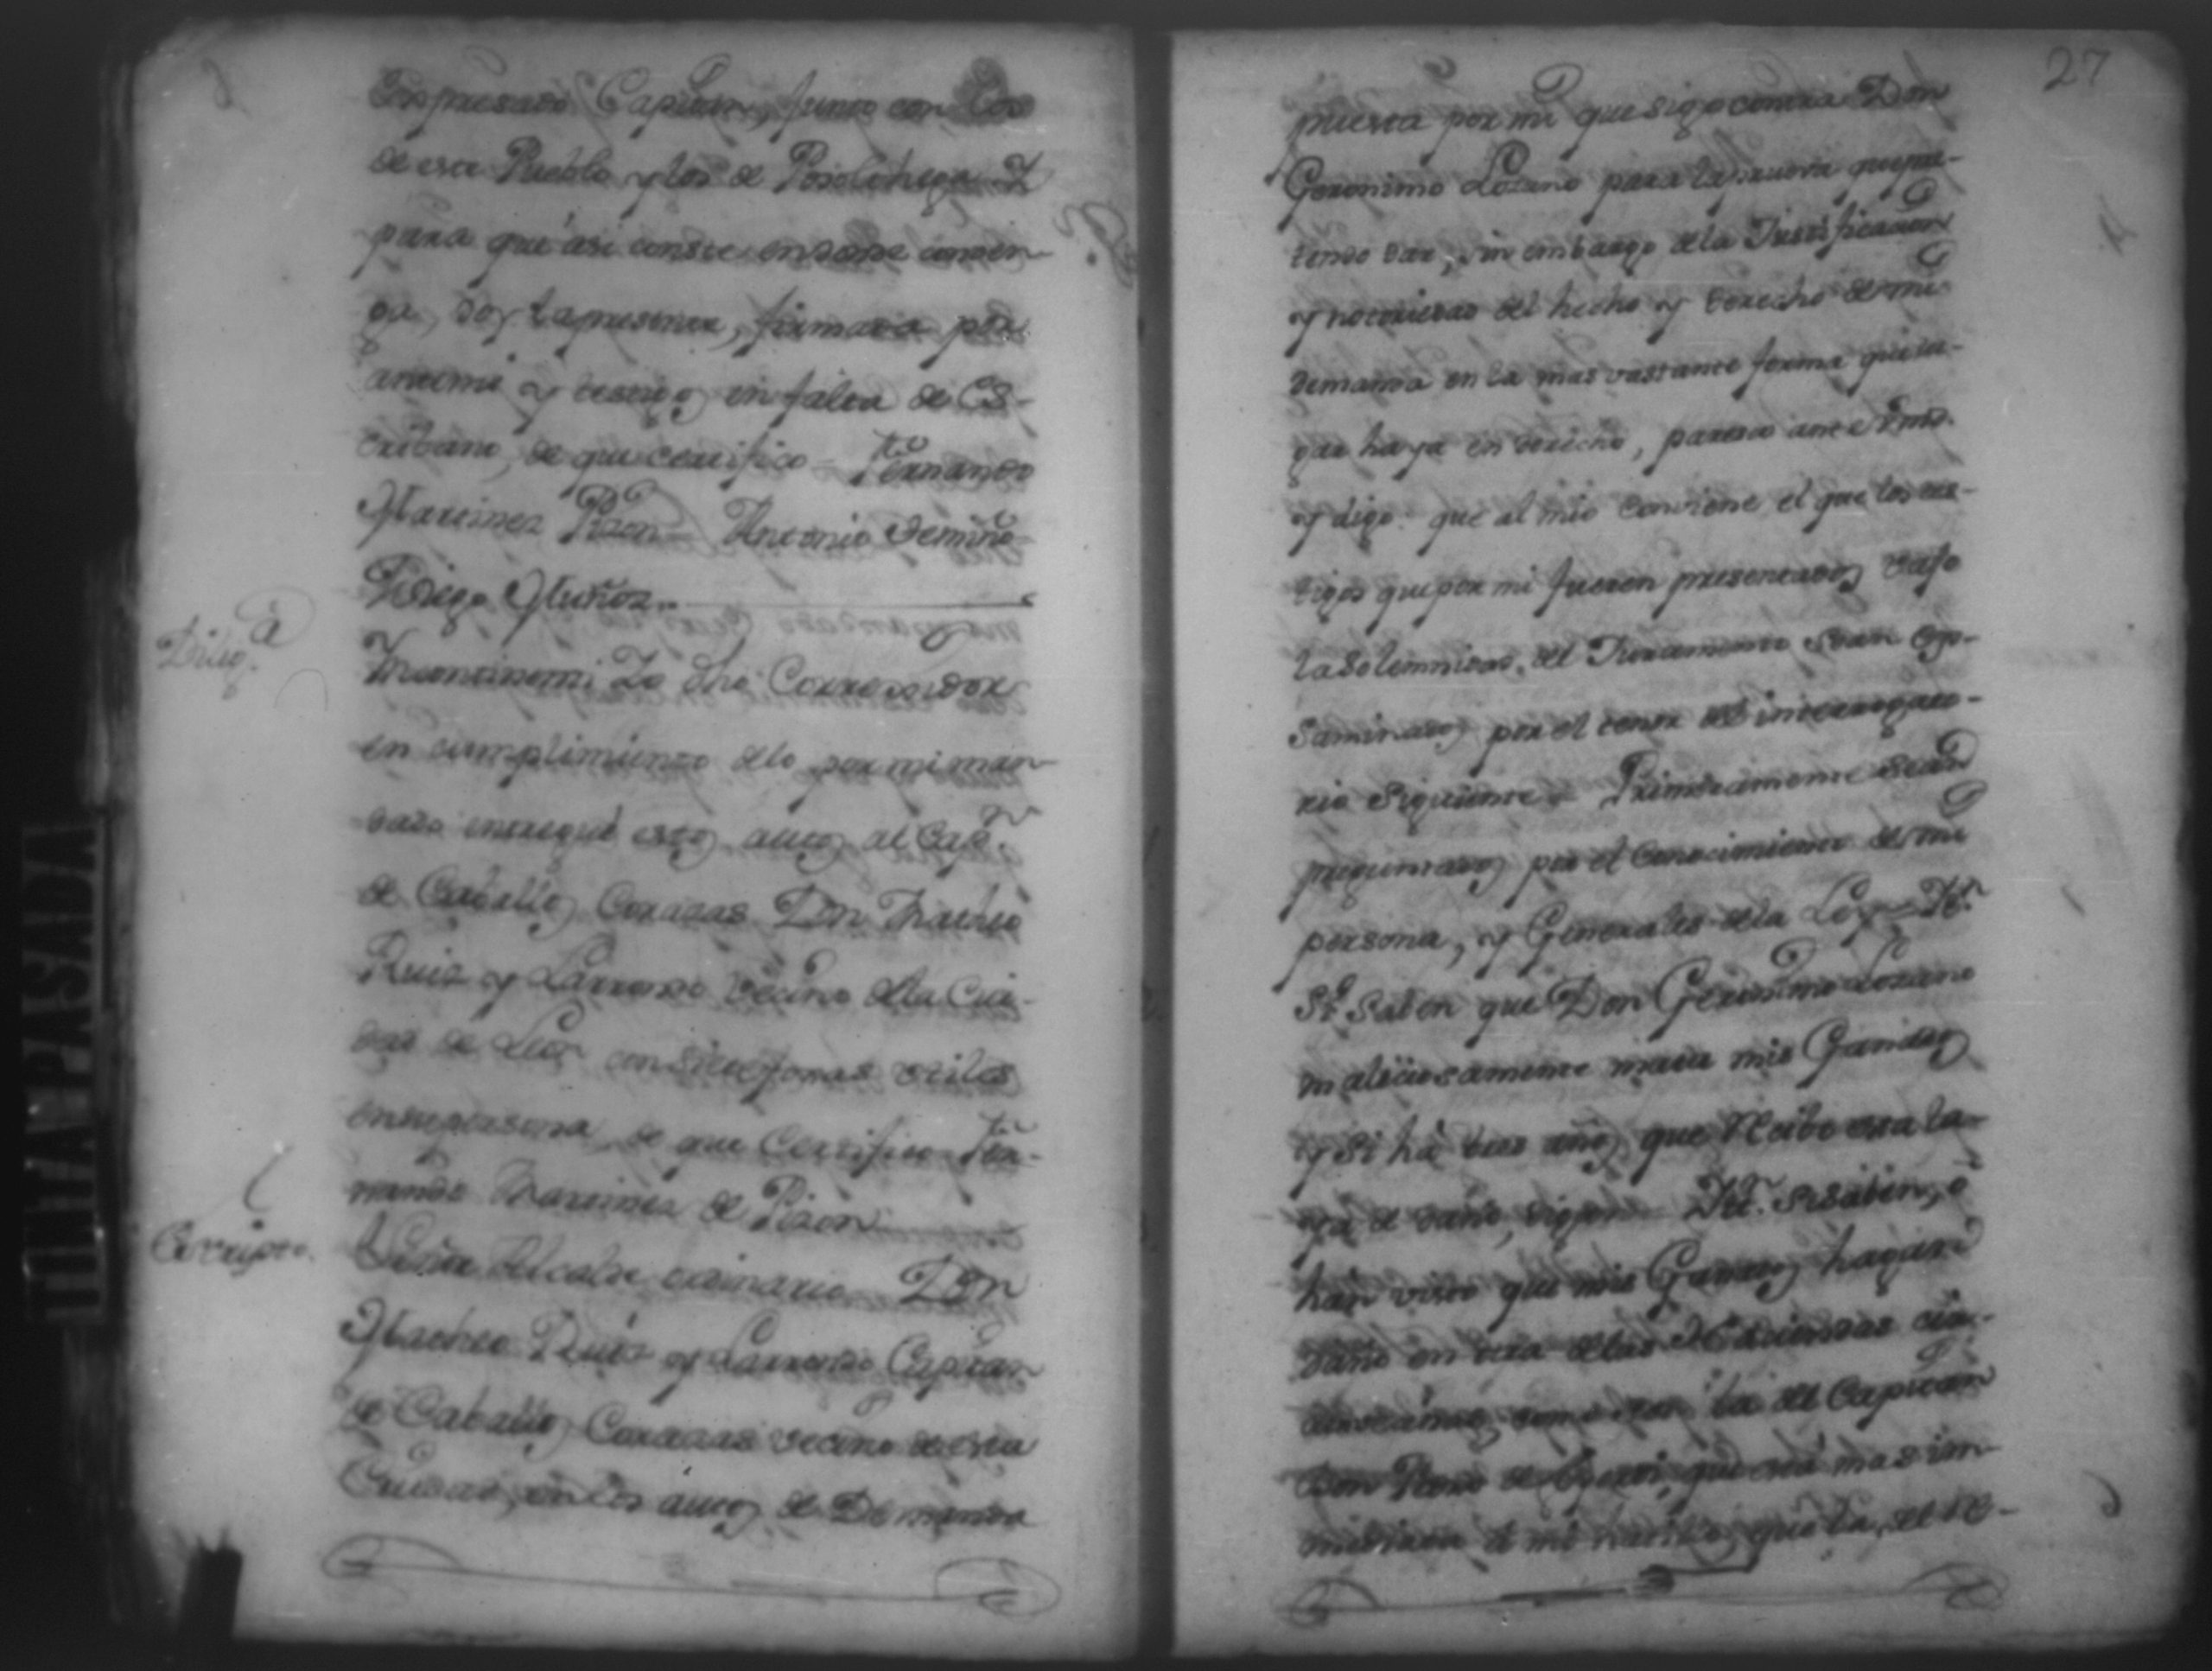 Expresado Capitan, junto con los
de este Pueblo y los de Posoltega Y
para que asi conste endonde conven-
ga, doy la presente, firmada por
ante mi y testigos en falta de Es-
cribano, de que certifico = Fernando
Martinez Pizon = Antonio
Diego Muñoz.
Dilig.a
Incontinenti Yo dho Corregidor
en cumplimiento dlo por mi man-
dado entregué estos autos al Capn.
de Caballos Corazas Don Matheo
Ruiz y Larrondo vecino dla Ciu-
dad de Leon con fojas utiles
en su persona, de que Certifico = Fer-
nando Martinez de Pizon
Escripto.
Señor Alcalde ordinario Don
Matheo Ruiz y Larrondo Capitan
de Caballos Corazas vecino de esta
Ciudad, en los autos de Demanda
27
puesta por mi que sigo contra Don
Geronimo Lozano para la prueva que pre-
tendo dar, sin embargo dla Justificacion
y notoriedad del hecho y derecho de mi
demanda en la mas vastante forma que lu-
gar haya en derecho, paresco ante Vmd.
y digo: que al mio conviene el que los tes-
tigos que por mi fueren presentados vajo
la solemnidad del Juramento sean exa-
minados por el tenor del interrogato-
rio siguiente = Primeramente sean
preguntados por el conocimiento de mi
persona, y Generales dla Ley = Yt.
Si saben que Don Geronimo Lozano
maliciosamente mata mis Ganados
y si há dos años que recibo esta la-
el daño, digan = Yt. Si saben, ó
hán visto que mis Ganados hagan
daño en otra dlas Haciendas
como son la del Capitan
Don que está mas in-
mediata á mi hatillo, que la, el re-